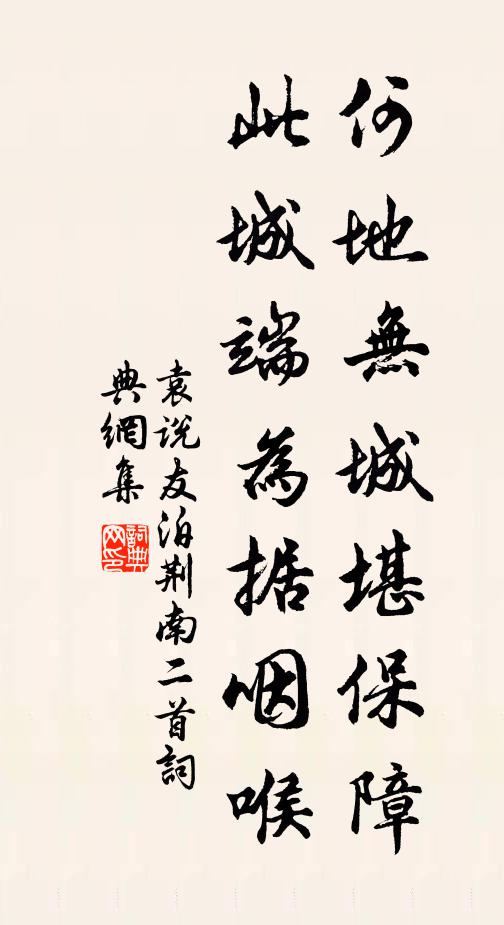 何地無城堪保障
此城端為据咽喉
袁説友泊荆南二首詞
典網集
詞典網印